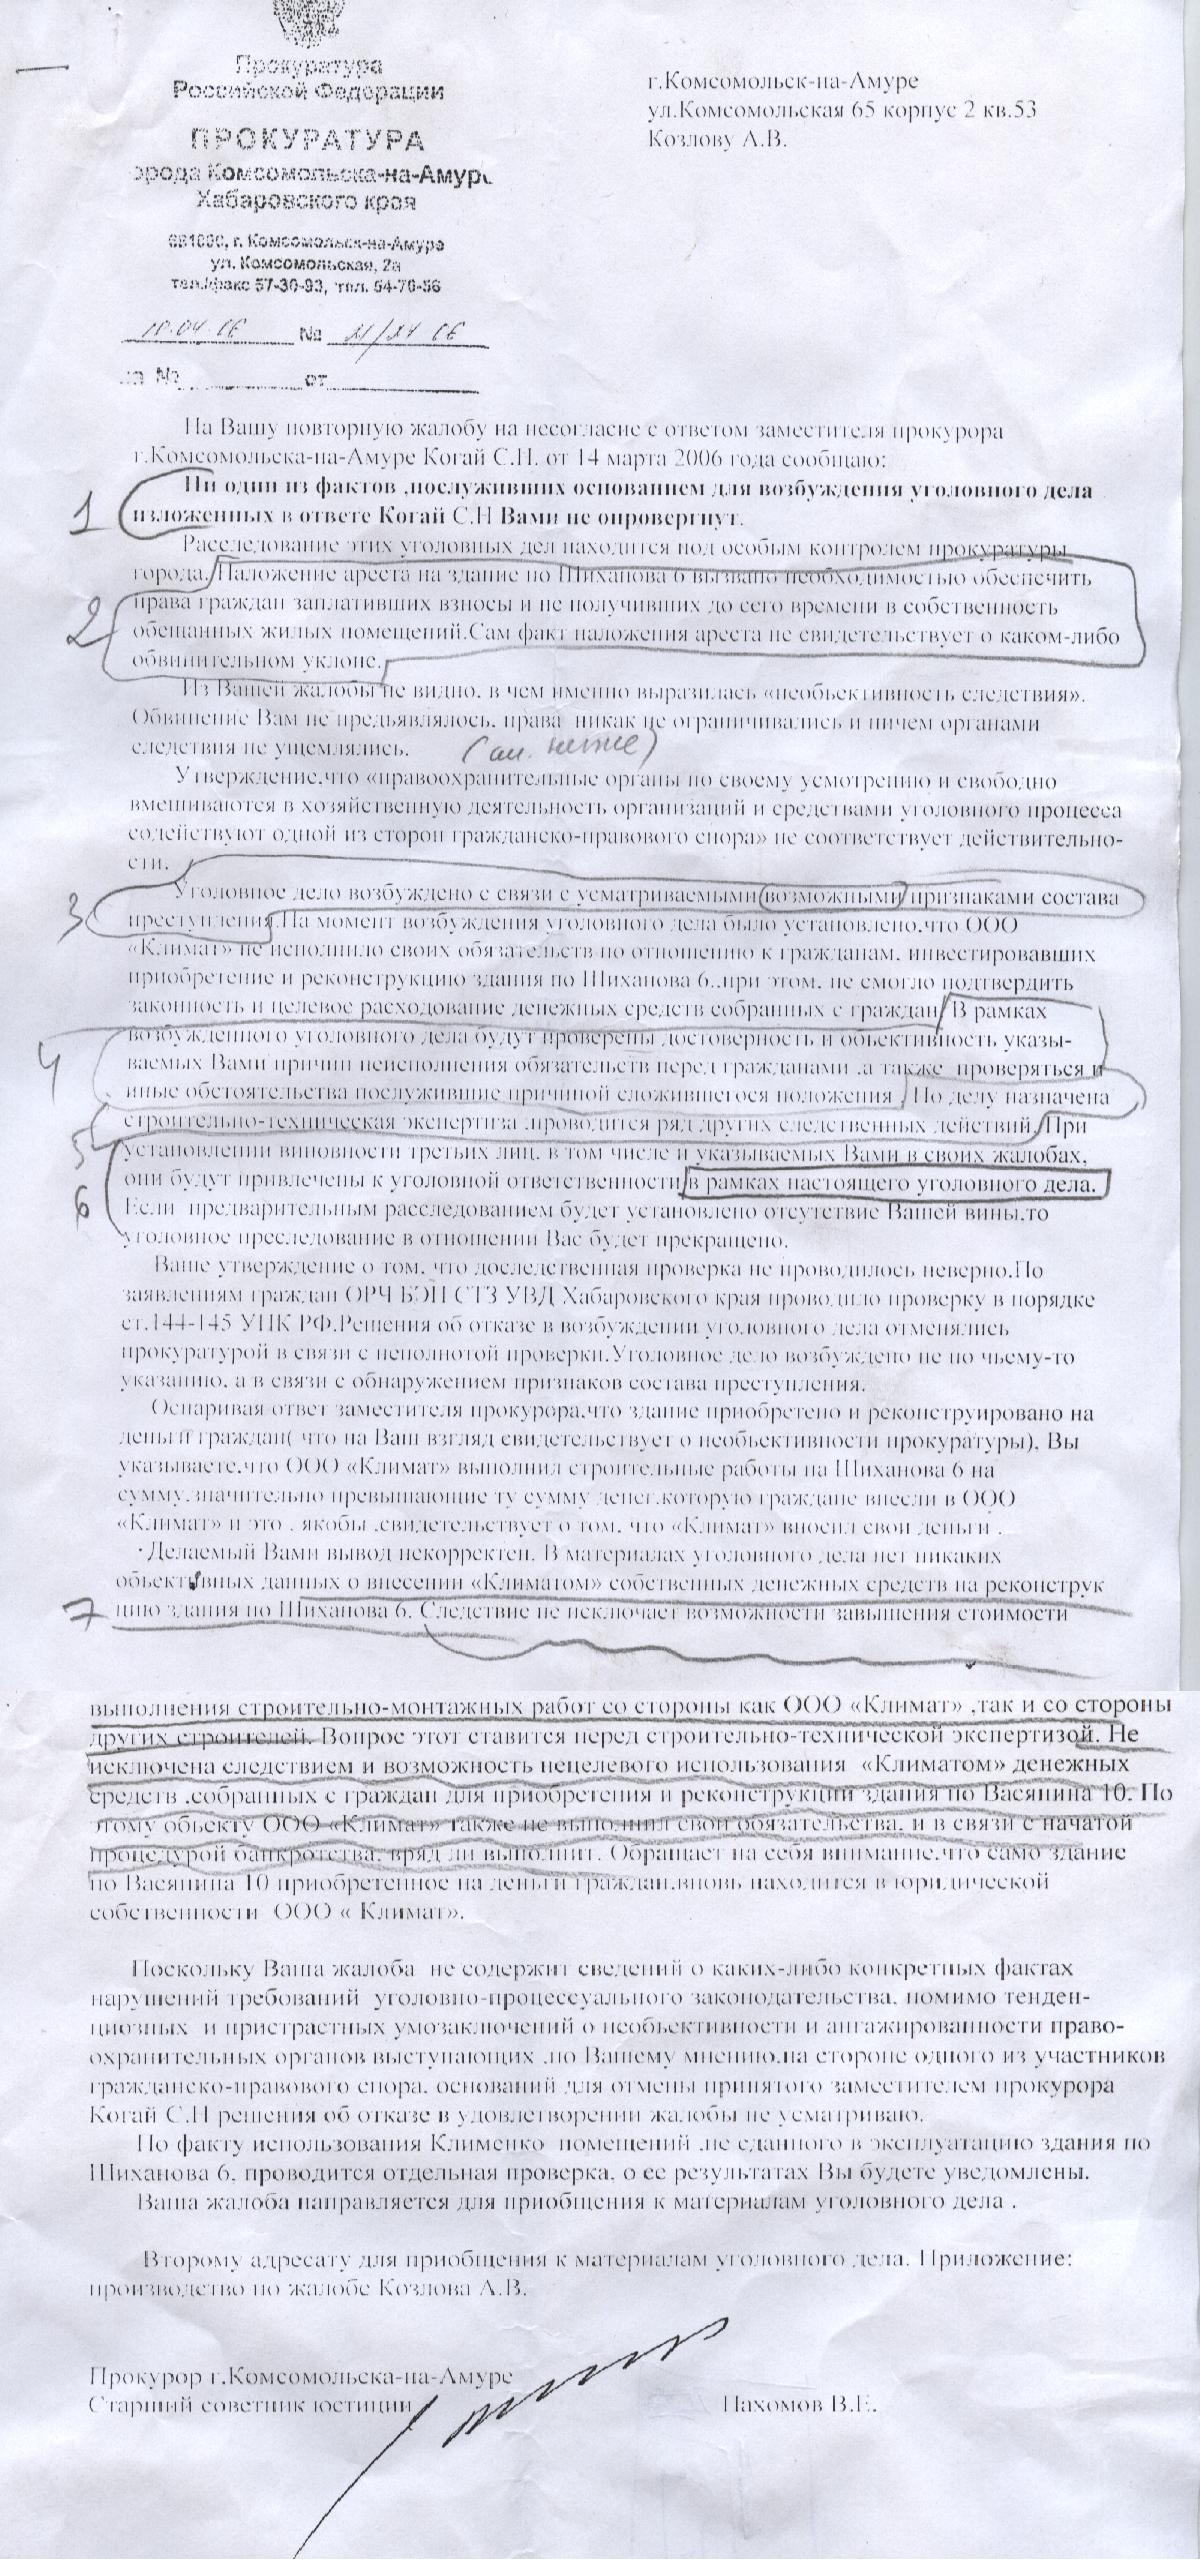 Прокуратура
Российской Федерации
ПРОКУРАТУРА
орода Комсомольска-на-Амуре
Хабаровского края
681000, г. Комсомольск-на-Амуре
ул. Комсомольская, 2а
тел./факс 57-30-93, тел. 54-70-56
10.04.06 №
на № от
г.Комсомольск-на-Амуре
ул.Комсомольская 65 корпус 2 кв.53
Козлову А.В.
На Вашу повторную жалобу на несогласие с ответом заместителя прокурора
г.Комсомольска-на-Амуре Когай С.Н. от 14 марта 2006 года сообщаю:
1 Ни один из фактов ,послуживших основанием для возбуждения уголовного дела
изложенных в ответе Когай С.Н Вами не опровергнут.
Расследование этих уголовных дел находится под особым контролем прокуратуры
города. Наложение ареста на здание по Шиханова 6 вызвано необходимостью обеспечить
2 права граждан заплативших взносы и не получивших до сего времени в собственность
обещанных жилых помещений.Сам факт наложения ареста не свидетельствует о каком-либо
обвинительном уклоне.
Из Вашей жалобы не видно, в чем именно выразилась «необьективность следствия».
Обвинение Вам не предьявлялось, права никак не ограничивались и ничем органами
следствия не ущемлялись. (см. ниже)
Утверждение,что «правоохранительные органы по своему усмотрению и свободно
вмешиваются в хозяйственную деятельность организаций и средствами уголовного процесса
содействуют одной из сторон гражданско-правового спора» не соответствует действительно-
сти.
3 Уголовное дело возбуждено с связи с усматриваемыми возможными признаками состава
преступления.На момент возбуждения уголовного дела было установлено,что ООО
«Климат» не исполнило своих обязательств по отношению к гражданам, инвестировавших
приобретение и реконструкцию здания по Шиханова 6.,при этом, не смогло подтвердить
законность и целевое расходование денежных средств собранных с граждан. В рамках
4 возбужденного уголовного дела будут проверены достоверность и обьективность указы-
ваемых Вами причин неисполнения обязательств перед гражданами ,а также проверяться и
иные обстоятельства послужившие причиной сложившегося положения . По делу назначена
5 строительно-техническая экспертиза ,проводится ряд других следственных действий. При
установлении виновности третьих лиц, в том числе и указываемых Вами в своих жалобах,
6 они будут привлечены к уголовной ответственности в рамках настоящего уголовного дела.
Если предварительным расследованием будет установлено отсутствие Вашей вины,то
уголовное преследование в отношении Вас будет прекращено.
Ваше утверждение о том, что доследственная проверка не проводилось неверно.По
заявлениям граждан ОРЧ БЭП СТЗ УВД Хабаровского края проводило проверку в порядке
ст.144-145 УПК РФ.Решения об отказе в возбуждении уголовного дела отменялись
прокуратурой в связи с неполнотой проверки.Уголовное дело возбуждено не по чьему-то
указанию, а в связи с обнаружением признаков состава преступления.
Оспаривая ответ заместителя прокурора,что здание приобретено и реконструировано на
деньги граждан( что на Ваш взгляд свидетельствует о необьективности прокуратуры), Вы
указываете,что ООО «Климат» выполнил строительные работы на Шиханова 6 на
сумму,значительно превышающие ту сумму денег,которую граждане внесли в ООО
«Климат» и это , якобы ,свидетельствует о том, что «Климат» вносил свои деньги .
Делаемый Вами вывод некорректен. В материалах уголовного дела нет никаких
обьективных данных о внесении «Климатом» собственных денежных средств на реконструк
7 цию здания по Шиханова 6. Следствие не исключает возможности завышения стоимости
выполнения строительно-монтажных работ со стороны как ООО «Климат» ,так и со стороны
других строителей. Вопрос этот ставится перед строительно-технической экспертизой. Не
исключена следствием и возможность нецелевого использования «Климатом» денежных
средств ,собранных с граждан для приобретения и реконструкции здания по Васянина 10. По
этому обьекту ООО «Климат» также не выполнил свои обязательства, и в связи с начатой
процедурой банкротства, вряд ли выполнит. Обращает на себя внимание,что само здание
по Васянина 10 приобретенное на деньги граждан,вновь находится в юридической
собственности ООО « Климат».
Поскольку Ваша жалоба не содержит сведений о каких-либо конкретных фактах
нарушений требований уголовно-процессуального законодательства, помимо тенден-
циозных и пристрастных умозаключений о необьективности и ангажированности право-
охранительных органов выступающих ,по Вашему мнению,на стороне одного из участников
гражданско-правового спора, оснований для отмены принятого заместителем прокурора
Когай С.Н решения об отказе в удовлетворении жалобы не усматриваю.
По факту использования Клименко помещений ,не сданного в эксплуатацию здания по
Шиханова 6, проводится отдельная проверка, о ее результатах Вы будете уведомлены.
Ваша жалоба направляется для приобщения к материалам уголовного дела .
Второму адресату для приобщения к материалам уголовного дела. Приложение:
производство по жалобе Козлова А.В.
Прокурор г.Комсомольска-на-Амуре
Старший советник юстиции Пахомов В.Е.